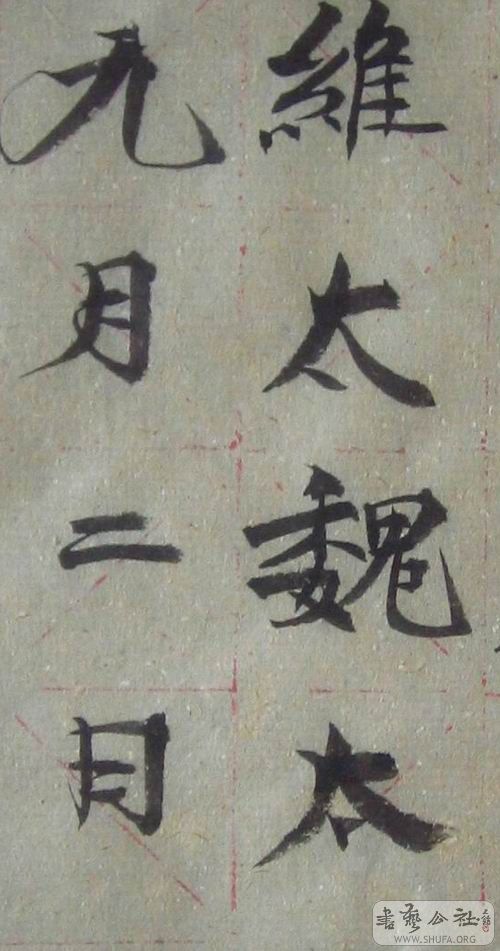 維太魏太
九月二月
書藝公社
WWW.SHUFA.ORG